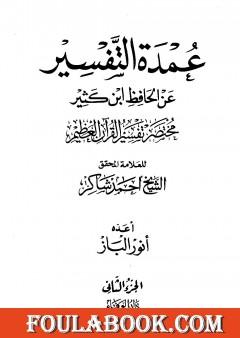 عُمْدَةُ التَّفْسِير
عَن الحَافِظ ابْن كَثِير
مُخْتَصَر تَفْسِيرُ القُرْآنِ العَظِيم
للعلامة المحقق
الشيخ أحمد شاكر
أعده
أنور الباز
الجزء الثاني
دار الوفاء
FOULABOOK.COM